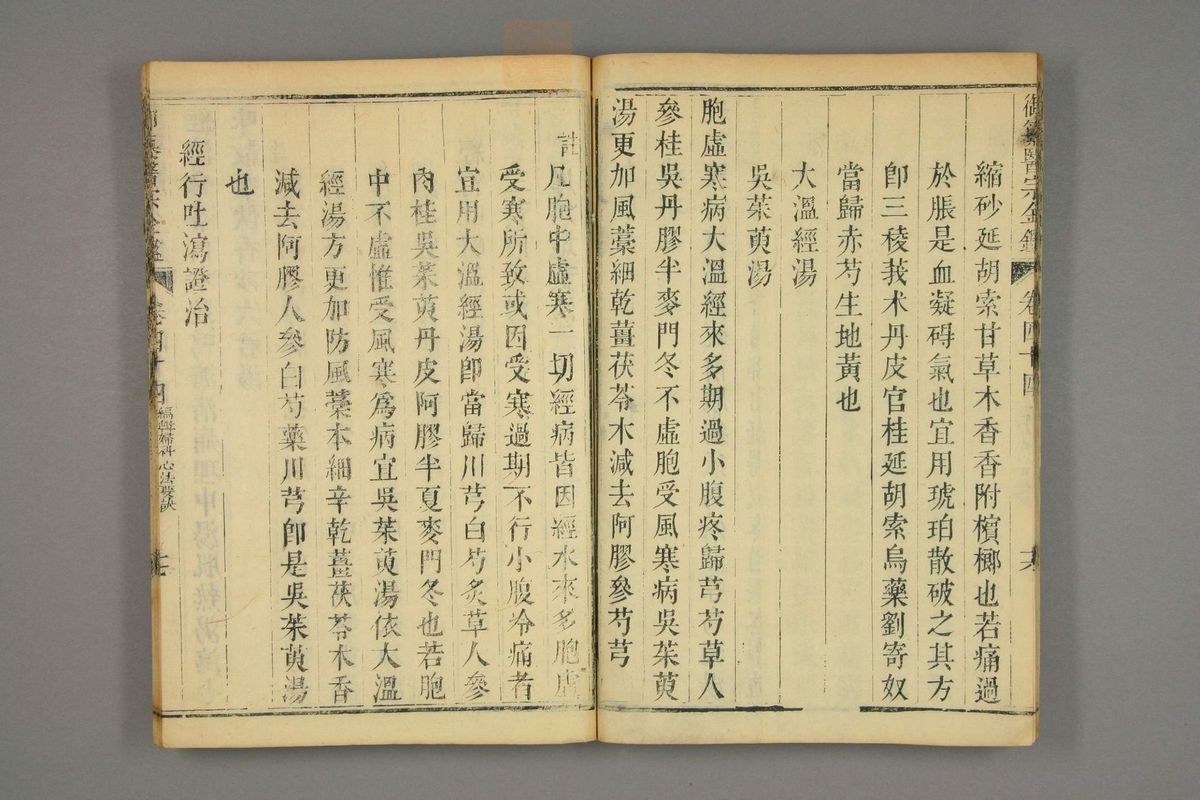 御纂醫宗金鑑 卷四十四
縮砂延胡索甘草木香香附檳榔也若痛過
於脹是血凝碍氣也宜用琥珀散破之其方
卽三稜莪术丹皮官桂延胡索烏藥劉寄奴
當歸赤芍生地黃也
大溫經湯
吳茱萸湯
胞虛寒病大溫經來多期過小腹疼歸芎芍草人
參桂吳丹膠半麥門冬不虛胞受風寒病吳茱萸
湯更加風藁細乾薑茯苓木減去阿膠參芍芎
註凡胞中虛寒一切經病皆因經水來多胞虛
受寒所致或因受寒過期不行小腹冷痛者
宜用大溫經湯卽當歸川芎白芍炙草人參
肉桂吳茱萸丹皮阿膠半夏麥門冬也若胞
中不虛惟受風寒爲病宜吳茱萸湯依大溫
經湯方更加防風藁本細辛乾薑茯苓木香
減去阿膠人參白芍藥川芎卽是吳茱萸湯
也
經行吐瀉證治
御纂醫宗金鑑 卷四十四 編輯婦科心法要訣